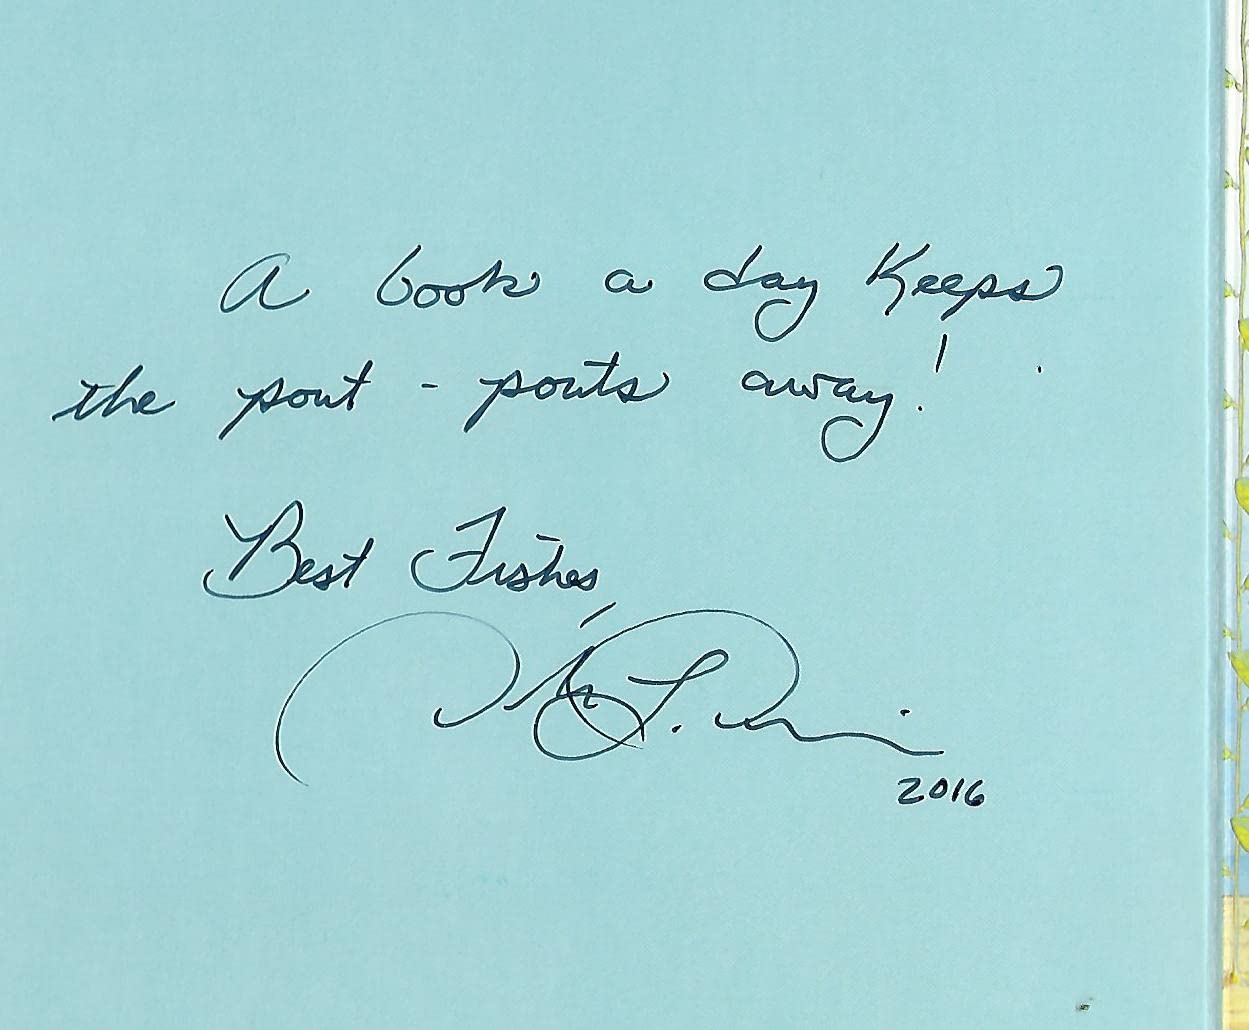 A book a day Keeps
the pout - pouts away!
Best Fishes,
L.
2016